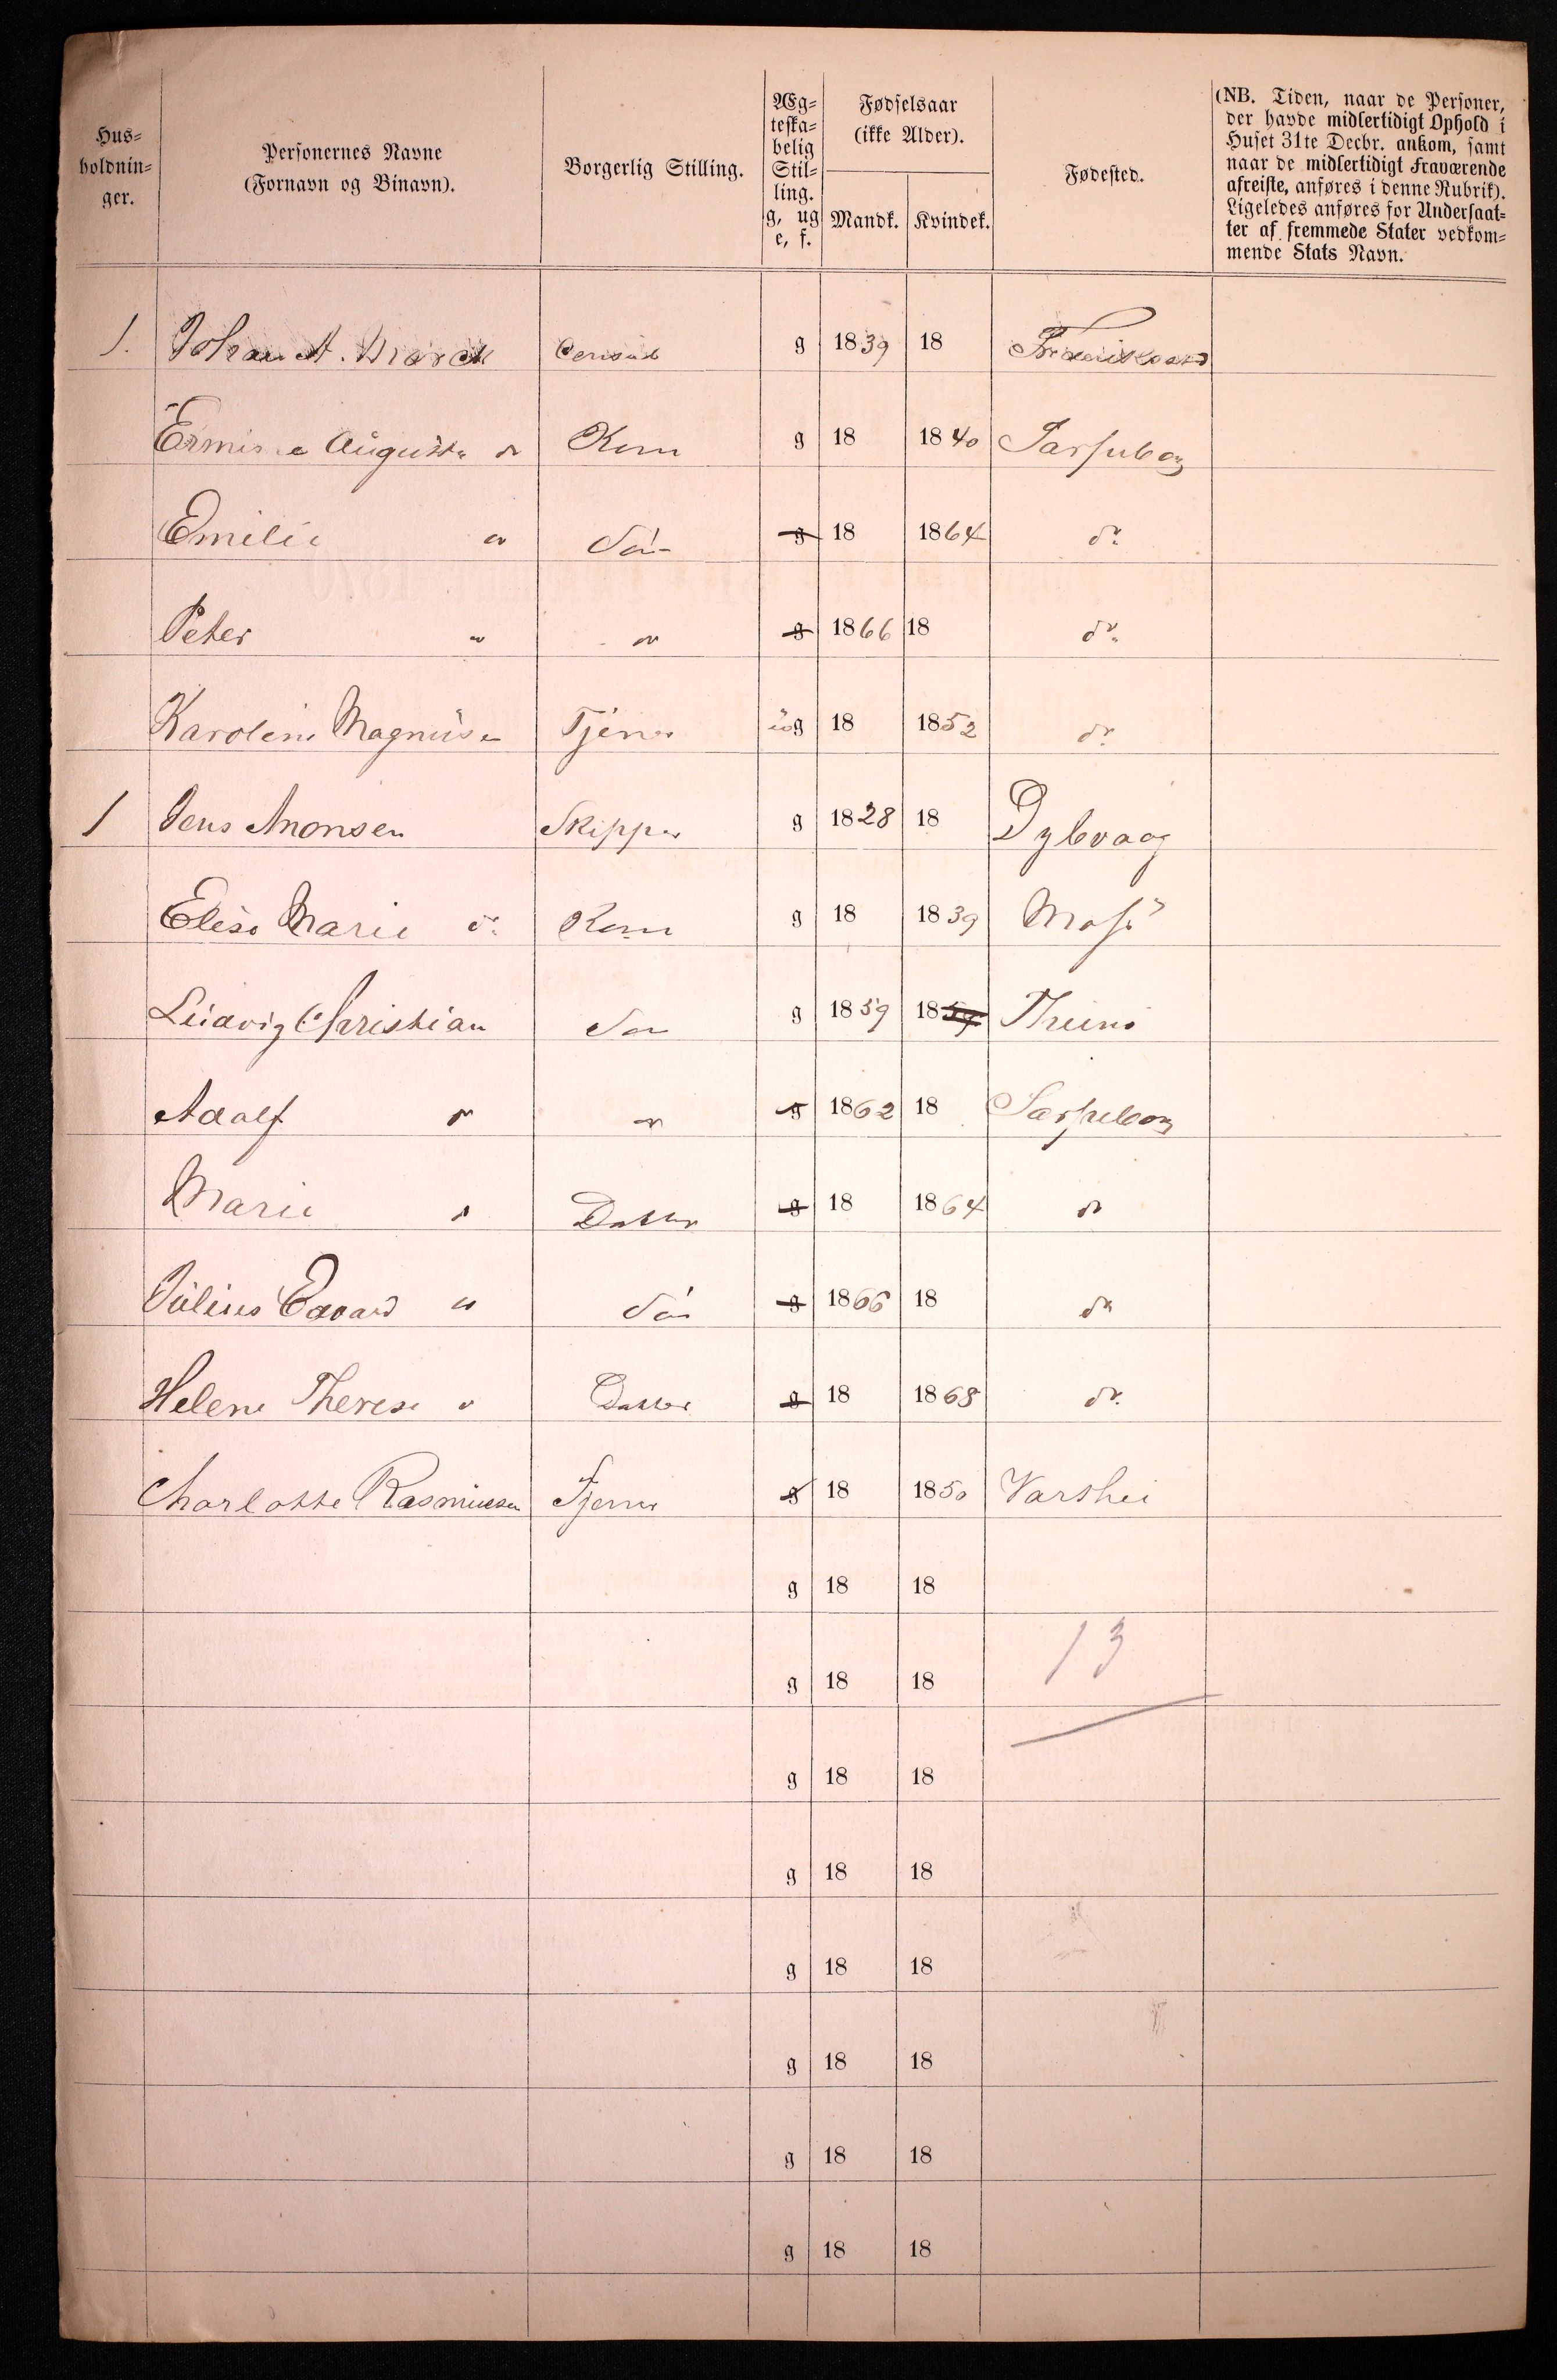 Hus=
holdnin=
ger.
Personernes Navne
(Fornavn og Binavn).
Borgerlig Stilling.
Æg=
teska=
belig
Stil=
ling.
g, ug
e, f.
Fødselsaar
(ikke Alder).
Mandk. Kvindek.
Fødested.
(NB. Tiden, naar de Personer,
der havde midlertidigt Ophold i
Huset 31te Decbr. ankom, samt
naar de midlertidigt fraværende
afreiste, anføres i denne Rubrik).
Ligeledes anføres for Undersaat=
ter af fremmede Stater vedkom=
mende Stats Navn.
1. Johan A. g 1839 18
Augusta do Kone g 18 1840 Sarpsborg
Emilie do g 18 1864 do
Peter do do g 1866 18 do
Karoline Magnusen Tjener ug 18 1852 do
1 Jens Amonsen Skipper g 1828 18 Dybvaag
Elise Marie do Kone g 18 1839
Ludvig Christian Søn g 1859 1859
Adolf do do g 1862 18 Sarpsborg
Marie do Datter g 18 1864 do
Julius Edvard do Søn g 1866 18 do
Helene Therese do Datter g 18 1868 do
Charlotte Rasmussen Tjener g 18 1850
g 18 18
g 18 18 13
g 18 18
g 18 18
g 18 18
g 18 18
g 18 18
g 18 18